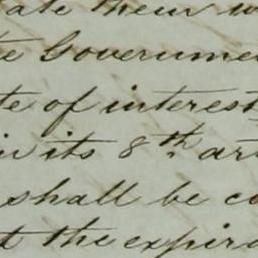 ate their w
te Governme
te of interest
in its 8th art
shall be co
t the expira